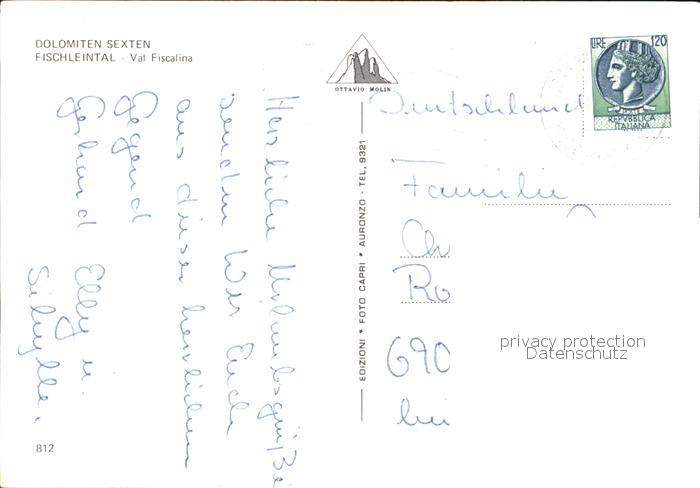 DOLOMITEN SEXTEN
FISCHLEINTAL - Val Fiscalina
OTTAVIO MOLIN
LIRE 120
REPVBBLICA
ITALIANA
Herzliche Urlaubsgrüße
senden Wir Euch
aus dieser herrlichen
Gegend
Gerhard Elly u.
Sibylle.
EDIZIONI * FOTO CAPRI * AURONZO - TEL. 9321
Deutschland
Familie
Ch
Ro
690
privacy protection
Datenschutz
812